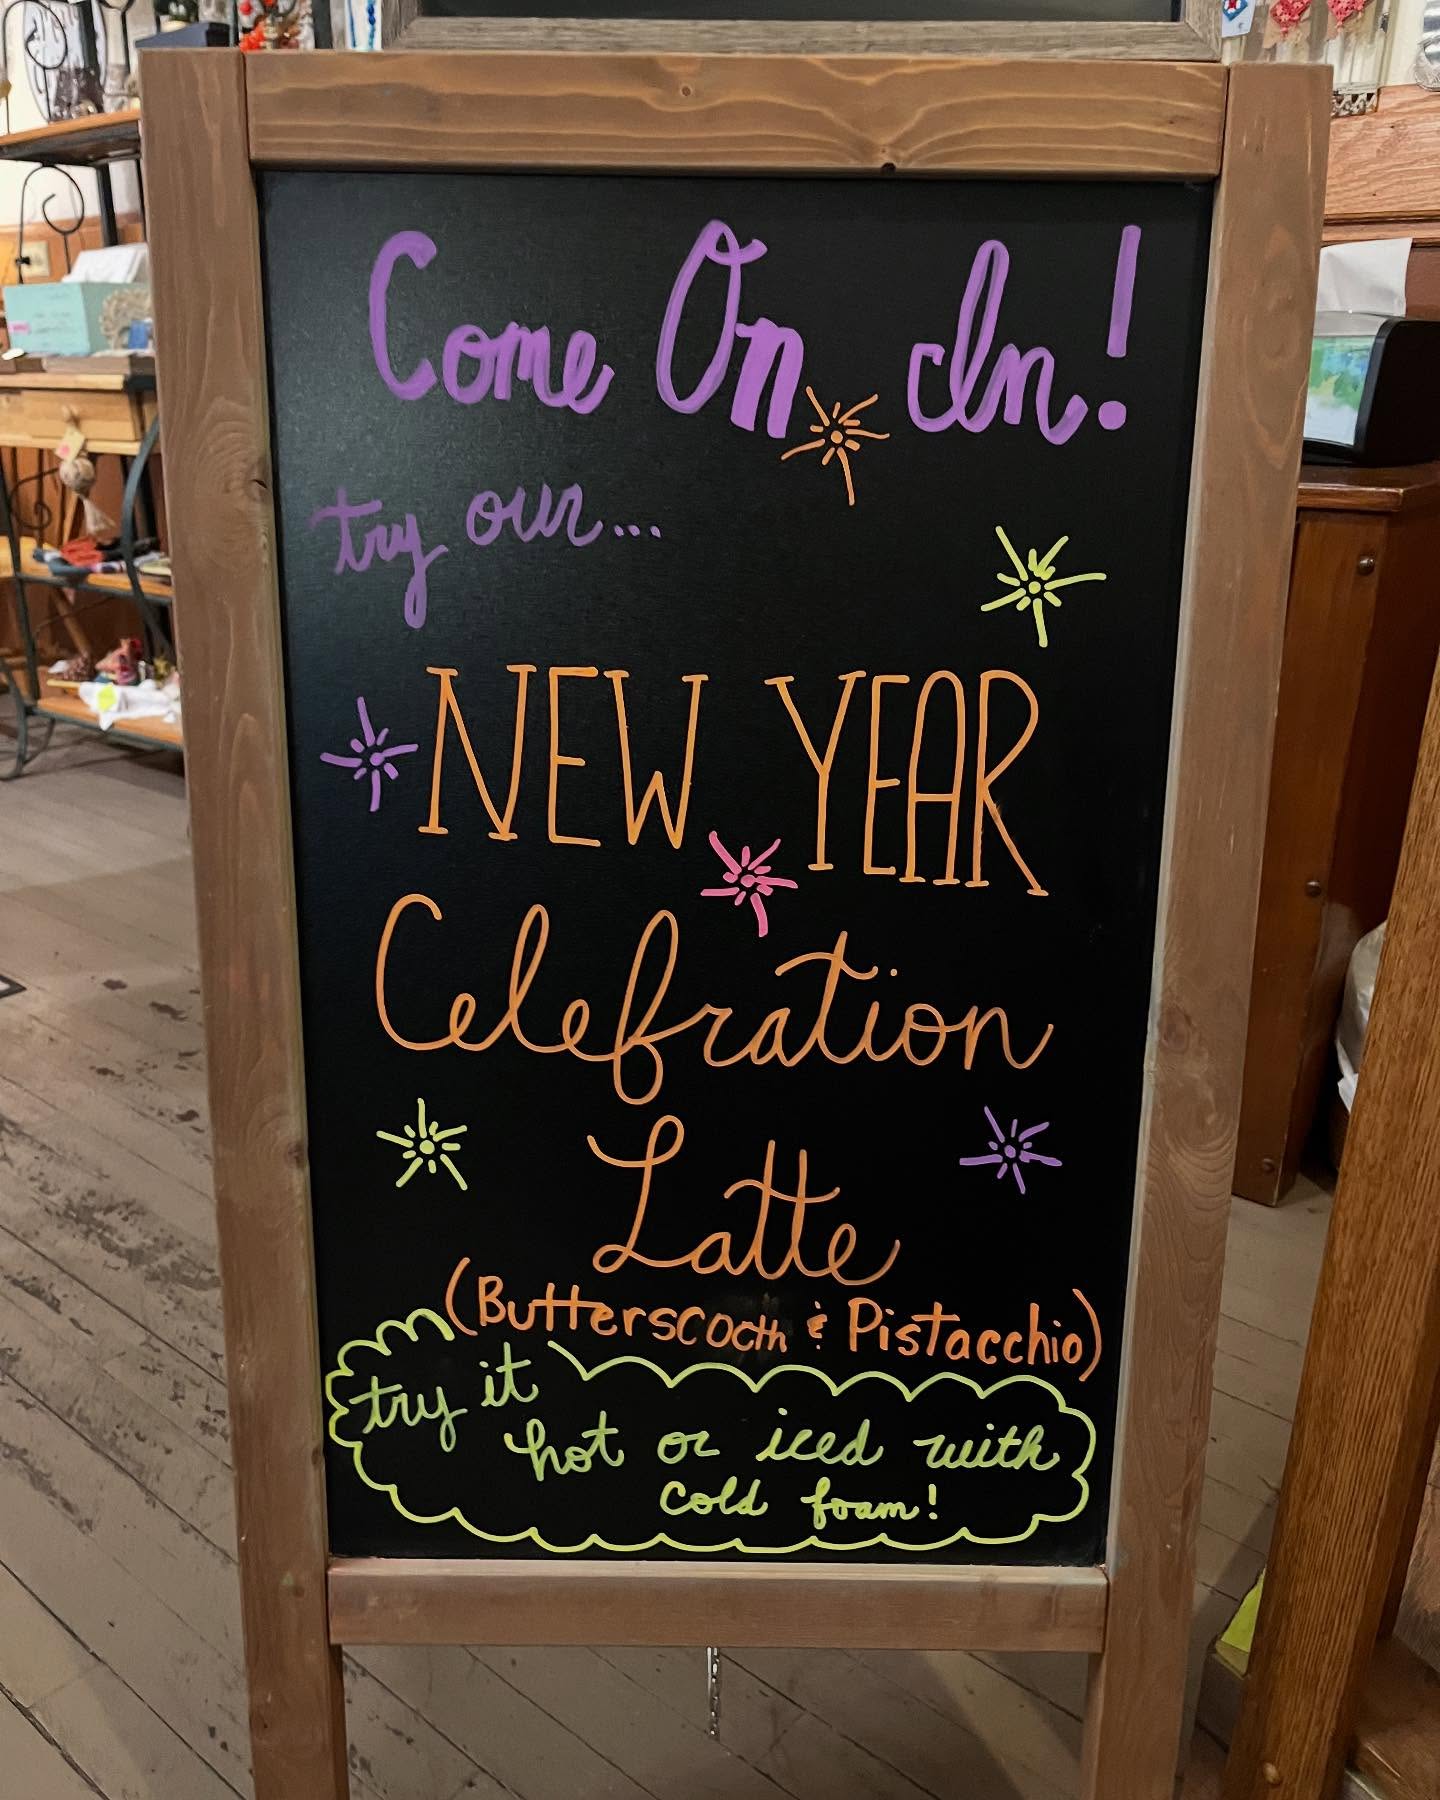 Come On In!
try our...
NEW YEAR
Celebration
Latte
(Butterscocth & Pistacchio)
try it
hot or iced with
cold foam!